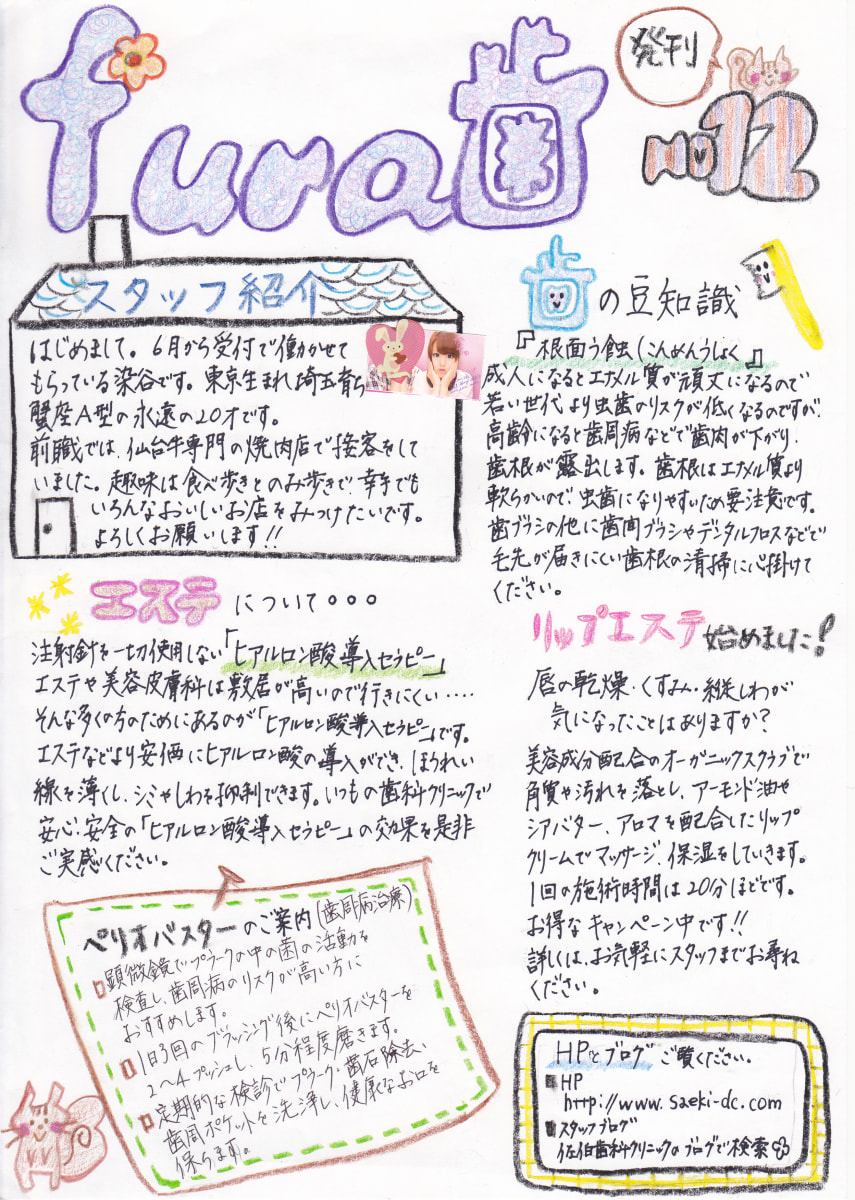 fura歯
発刊
No12
スタッフ紹介
はじめまして。6月から受付で働かせて
もらっている染谷です。東京生まれ埼玉育ち
蟹座A型の永遠の20才です。
前職では、仙台牛専門の焼肉店で接客をして
いました。趣味は食べ歩きとのみ歩きで、幸手でも
いろんなおいしいお店をみつけたいです。
よろしくお願いします!!
歯の豆知識
『根面う蝕(こんめんうしょく』
成人になるとエナメル質が頑丈になるので
若い世代より虫歯のリスクが低くなるのですが、
高齢になると歯周病などで歯肉が下がり、
歯根が露出します。歯根はエナメル質より
軟らかいので、虫歯になりやすいため要注意です。
歯ブラシの他に歯間ブラシやデンタルフロスなどで
毛先が届きにくい歯根の清掃に心掛けて
ください。
エステについて。。。
注射針を一切使用しない「ヒアルロン酸導入セラピー」
エステや美容皮膚科は敷居が高いので行きにくい‥‥
そんな多くの方のためにあるのが「ヒアルロン酸導入セラピー」です。
エステなどより安価にヒアルロン酸の導入ができ、ほうれい
線を薄くし、シミやしわを抑制できます。いつもの歯科クリニックで
安心・安全の「ヒアルロン酸導入セラピー」の効果を是非
ご実感ください。
リップエステ始めました!
唇の乾燥・くすみ・縦じわが
気になったことはありますか?
美容成分配合のオーガニックスクラブで
角質や汚れを落とし、アーモンド油や
シアバター、アロマを配合したリップ
クリームでマッサージ、保湿をしていきます。
1回の施術時間は20分ほどです。
お得なキャンペーン中です!!
詳しくは、お気軽にスタッフまでお尋ね
ください。
ペリオバスターのご案内(歯周病治療)
顕微鏡でプラークの中の菌の活動を
検査し、歯周病のリスクが高い方に
おすすめします。
1日3回のブラッシング後にペリオバスターを
2〜4プッシュし、5分程度磨きます。
定期的な検診でプラーク・歯石除去、
歯周ポケットを洗浄し、健康なお口を
保ちます。
HPとブログご覧ください。
HP
http://www.saeki-dc.com
スタッフブログ
佐伯歯科クリニックのブログで検索